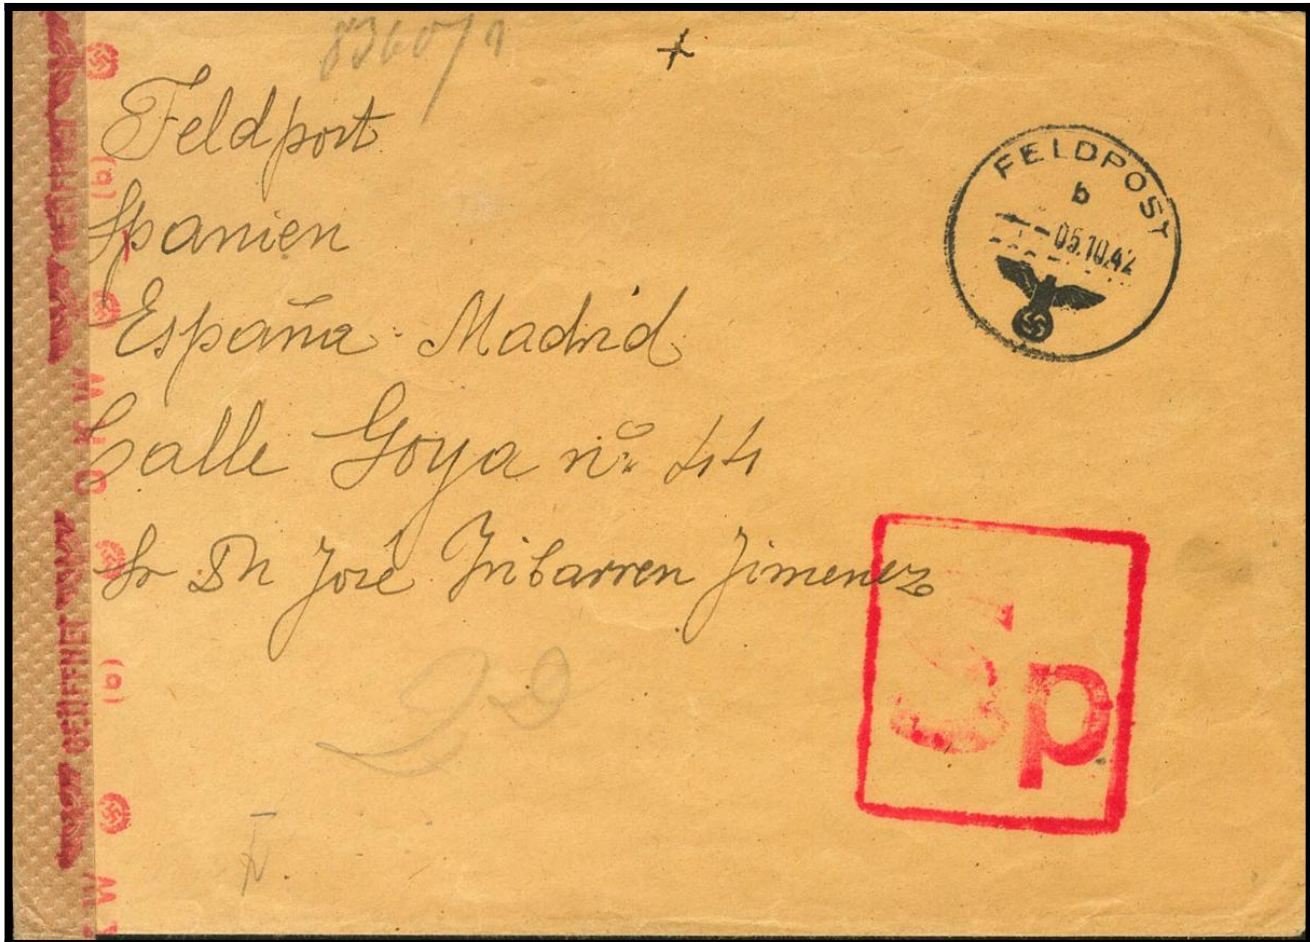 8360/9
+
Feldport
Spanien
España - Madrid
Calle Goya nº 44
Sr Dn José Iribarren Jimenez
FELDPOST
b
05.10.42
Sp
GEÖFFNET
(b)
O K W
GEÖFFNET
(b)
K W